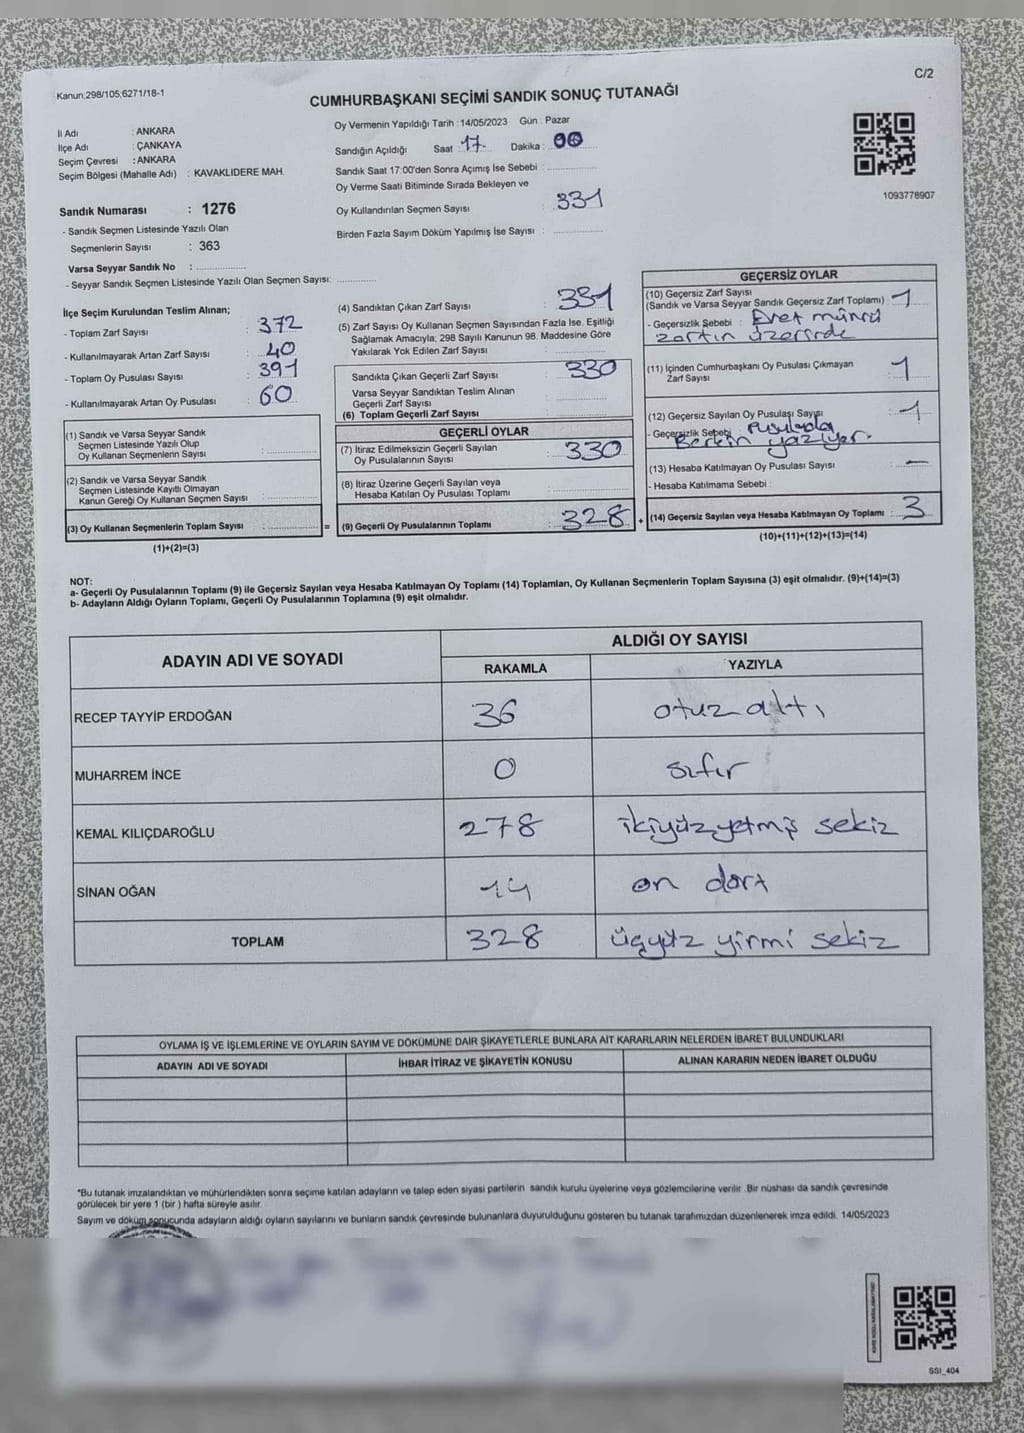 Kanun:298/105,6271/18-1
C/2
CUMHURBAŞKANI SEÇİMİ SANDIK SONUÇ TUTANAĞI
İl Adı : ANKARA
İlçe Adı : ÇANKAYA
Seçim Çevresi : ANKARA
Seçim Bölgesi (Mahalle Adı) : KAVAKLIDERE MAH.
Sandık Numarası : 1276
- Sandık Seçmen Listesinde Yazılı Olan
Seçmenlerin Sayısı : 363
Varsa Seyyar Sandık No :
- Seyyar Sandık Seçmen Listesinde Yazılı Olan Seçmen Sayısı:
Oy Vermenin Yapıldığı Tarih : 14/05/2023 Gün : Pazar
Sandığın Açıldığı Saat 17 Dakika : 00
Sandık Saat 17:00'den Sonra Açımış İse Sebebi :
Oy Verme Saati Bitiminde Sırada Bekleyen ve
Oy Kullandırılan Seçmen Sayısı : 331
Birden Fazla Sayım Döküm Yapılmış İse Sayısı :
1093778907
İlçe Seçim Kurulundan Teslim Alınan;
- Toplam Zarf Sayısı : 372
- Kullanılmayarak Artan Zarf Sayısı : 40
- Toplam Oy Pusulası Sayısı : 391
- Kullanılmayarak Artan Oy Pusulası : 60
(1) Sandık ve Varsa Seyyar Sandık
Seçmen Listesinde Yazılı Olup
Oy Kullanan Seçmenlerin Sayısı
(2) Sandık ve Varsa Seyyar Sandık
Seçmen Listesinde Kayıtlı Olmayan
Kanun Gereği Oy Kullanan Seçmen Sayısı :
(3) Oy Kullanan Seçmenlerin Toplam Sayısı :
(1)+(2)=(3)
(4) Sandıktan Çıkan Zarf Sayısı : 331
(5) Zarf Sayısı Oy Kullanan Seçmen Sayısından Fazla İse, Eşitliği
Sağlamak Amacıyla; 298 Sayılı Kanunun 98. Maddesine Göre
Yakılarak Yok Edilen Zarf Sayısı :
Sandıkta Çıkan Geçerli Zarf Sayısı : 330
Varsa Seyyar Sandıktan Teslim Alınan
Geçerli Zarf Sayısı :
(6) Toplam Geçerli Zarf Sayısı
GEÇERLİ OYLAR
(7) İtiraz Edilmeksizin Geçerli Sayılan
Oy Pusulalarının Sayısı : 330
(8) İtiraz Üzerine Geçerli Sayılan veya
Hesaba Katılan Oy Pusulası Toplamı
= (9) Geçerli Oy Pusulalarının Toplamı : 328
GEÇERSİZ OYLAR
(10) Geçersiz Zarf Sayısı
(Sandık ve Varsa Seyyar Sandık Geçersiz Zarf Toplamı) : 1
- Geçersizlik Sebebi : Evet mührü
zarfın üzerinde
(11) İçinden Cumhurbaşkanı Oy Pusulası Çıkmayan
Zarf Sayısı : 1
(12) Geçersiz Sayılan Oy Pusulaşı Sayısı : 1
- Geçersizlik Sebebi Pusulada
Berkin yazıyor.
(13) Hesaba Katılmayan Oy Pusulası Sayısı : -
- Hesaba Katılmama Sebebi :
+ (14) Geçersiz Sayılan veya Hesaba Katılmayan Oy Toplamı : 3
(10)+(11)+(12)+(13)=(14)
NOT:
a- Geçerli Oy Pusulalarının Toplamı (9) ile Geçersiz Sayılan veya Hesaba Katılmayan Oy Toplamı (14) Toplamları, Oy Kullanan Seçmenlerin Toplam Sayısına (3) eşit olmalıdır. (9)+(14)=(3)
b- Adayların Aldığı Oyların Toplamı, Geçerli Oy Pusulalarının Toplamına (9) eşit olmalıdır.
ADAYIN ADI VE SOYADI
ALDIĞI OY SAYISI
RAKAMLA YAZIYLA
RECEP TAYYİP ERDOĞAN 36 otuz altı
MUHARREM İNCE 0 sıfır
KEMAL KILIÇDAROĞLU 278 ikiyüzyetmiş sekiz
SİNAN OĞAN 14 on dört
TOPLAM 328 üçyüz yirmi sekiz
OYLAMA İŞ VE İŞLEMLERİNE VE OYLARIN SAYIM VE DÖKÜMÜNE DAİR ŞİKAYETLERLE BUNLARA AİT KARARLARIN NELERDEN İBARET BULUNDUKLARI
ADAYIN ADI VE SOYADI İHBAR İTİRAZ VE ŞİKAYETİN KONUSU ALINAN KARARIN NEDEN İBARET OLDUĞU
*Bu tutanak imzalandıktan ve mühürlendikten sonra seçime katılan adayların ve talep eden siyasi partilerin sandık kurulu üyelerine veya gözlemcilerine verilir .Bir nüshası da sandık çevresinde
görülecek bir yere 1 (bir ) hafta süreyle asılır.
Sayım ve döküm sonucunda adayların aldığı oyların sayılarını ve bunların sandık çevresinde bulunanlara duyurulduğunu gösteren bu tutanak tarafımızdan düzenlenerek imza edildi. 14/05/2023
SSI_404